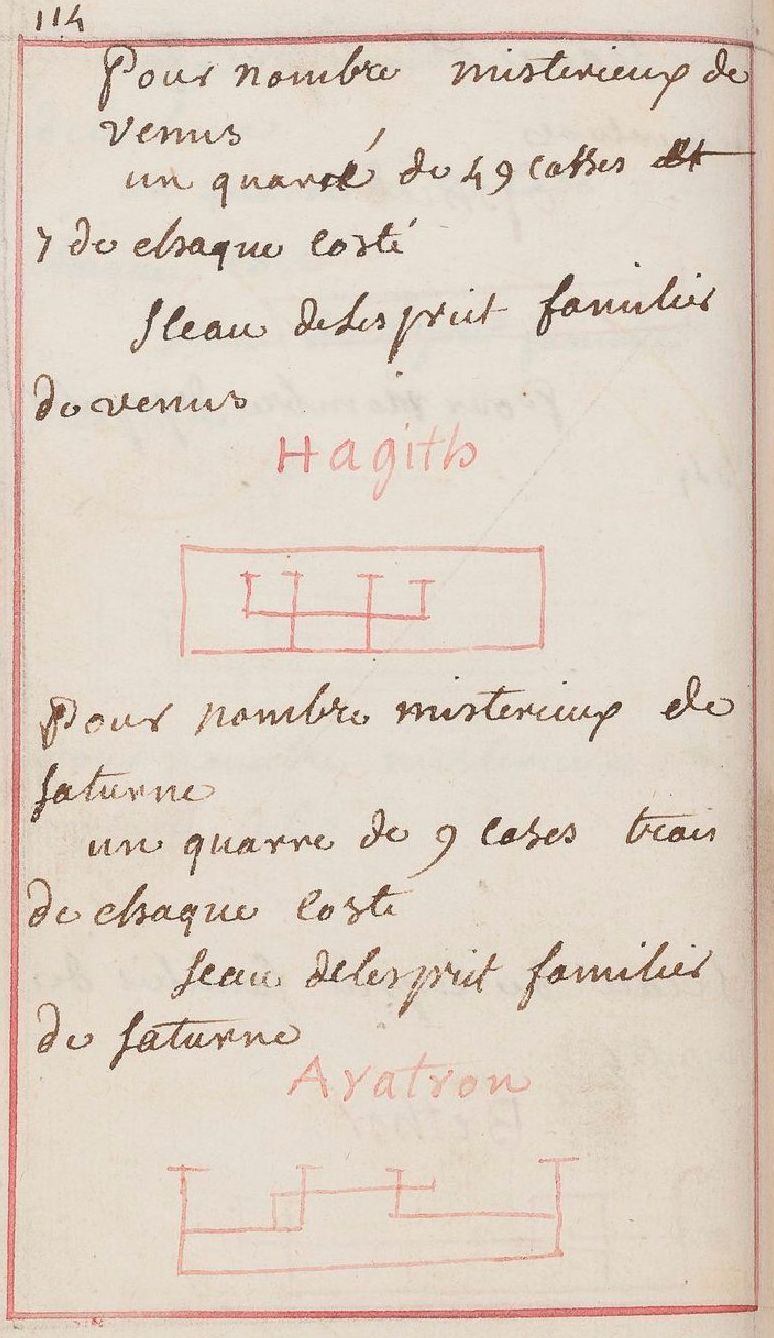 114
Pour nombre misterieux de
venus
un quarré de 49 casses
7 de chaque costé
sceau delesprit familier
de venus
Hagith
Pour nombre misterieux de
saturne
un quarre de 9 cases trois
de chaque coste
seau delesprit familier
de saturne
Aratron